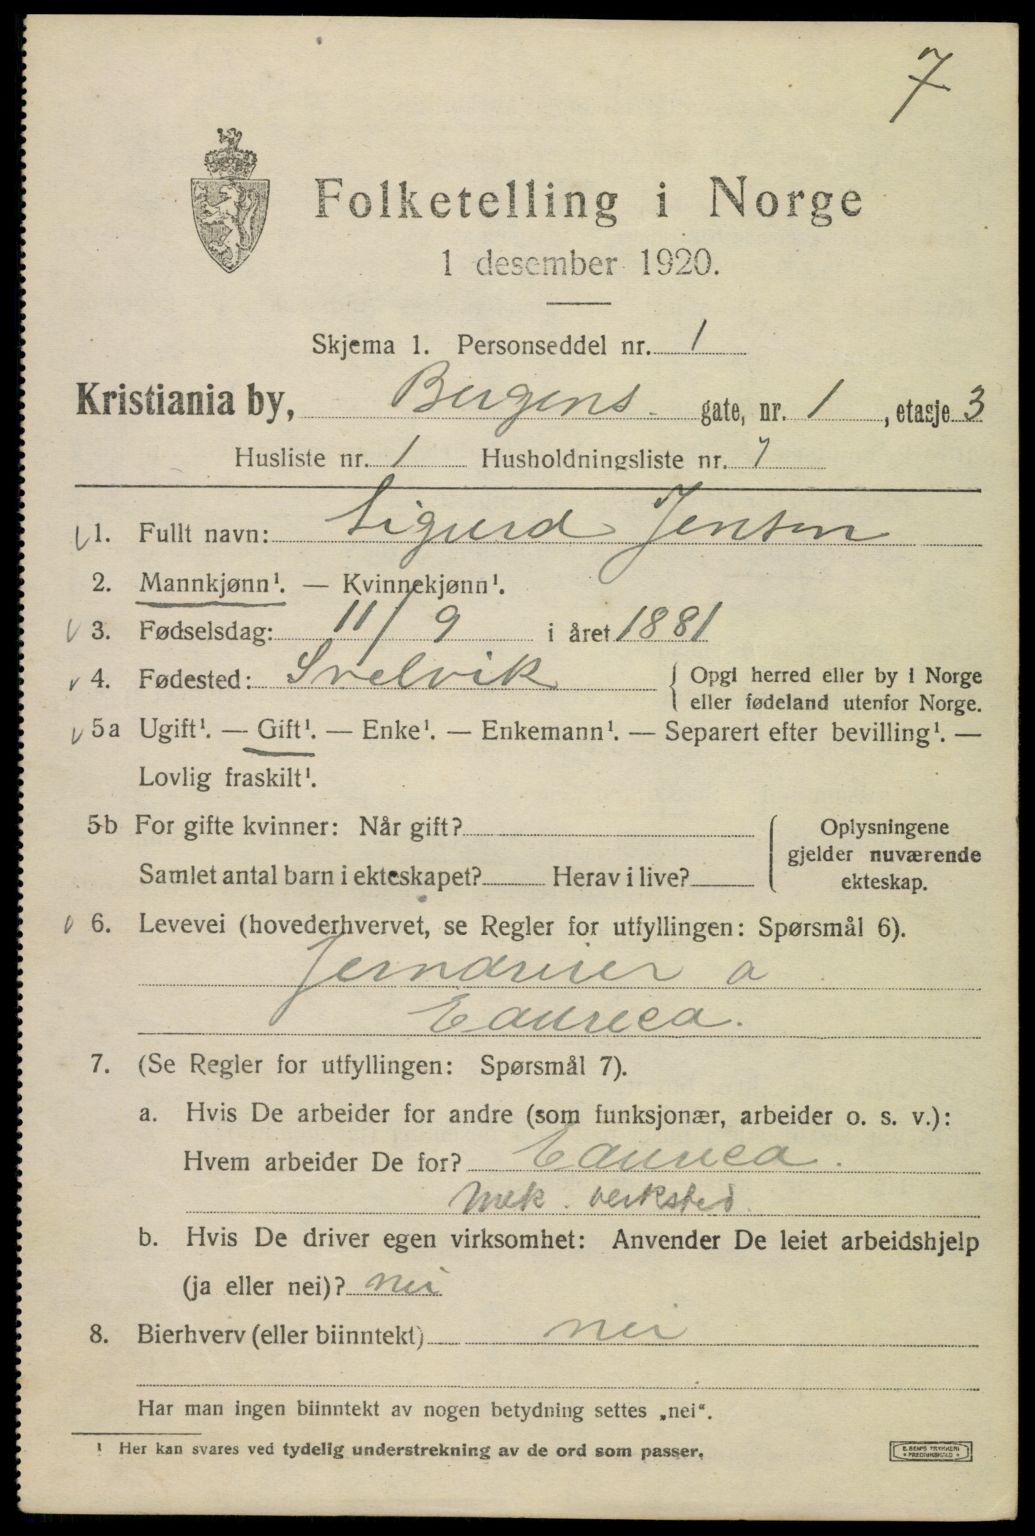 7
Folketelling i Norge
1 desember 1920.
Skjema 1. Personseddel nr. 1
Kristiania by, Bergens gate, nr. 1, etasje 3
Husliste nr. 1 Husholdningsliste nr. 7
1. Fullt navn: Sigurd Jensen
2. Mannkjønn¹. — Kvinnekjønn¹.
3. Fødselsdag: 11/9 i året 1881
4. Fødested: Svelvik { Opgi herred eller by i Norge
eller fødeland utenfor Norge.
5a Ugift¹. — Gift¹. — Enke¹. — Enkemann¹. — Separert efter bevilling¹. —
Lovlig fraskilt¹.
5b For gifte kvinner: Når gift?
Samlet antal barn i ekteskapet? Herav i live?
Oplysningene
gjelder nuværende
ekteskap.
6. Levevei (hovederhvervet, se Regler for utfyllingen: Spørsmål 6).
Jerndreier a
Eaureca.
7. (Se Regler for utfyllingen: Spørsmål 7).
a. Hvis De arbeider for andre (som funksjonær, arbeider o. s. v.):
Hvem arbeider De for? Eaureca.
Mek. verksted.
b. Hvis De driver egen virksomhet: Anvender De leiet arbeidshjelp
(ja eller nei)? nei
8. Bierhverv (eller biinntekt) nei
Har man ingen biinntekt av nogen betydning settes „nei“.
¹ Her kan svares ved tydelig understrekning av de ord som passer.